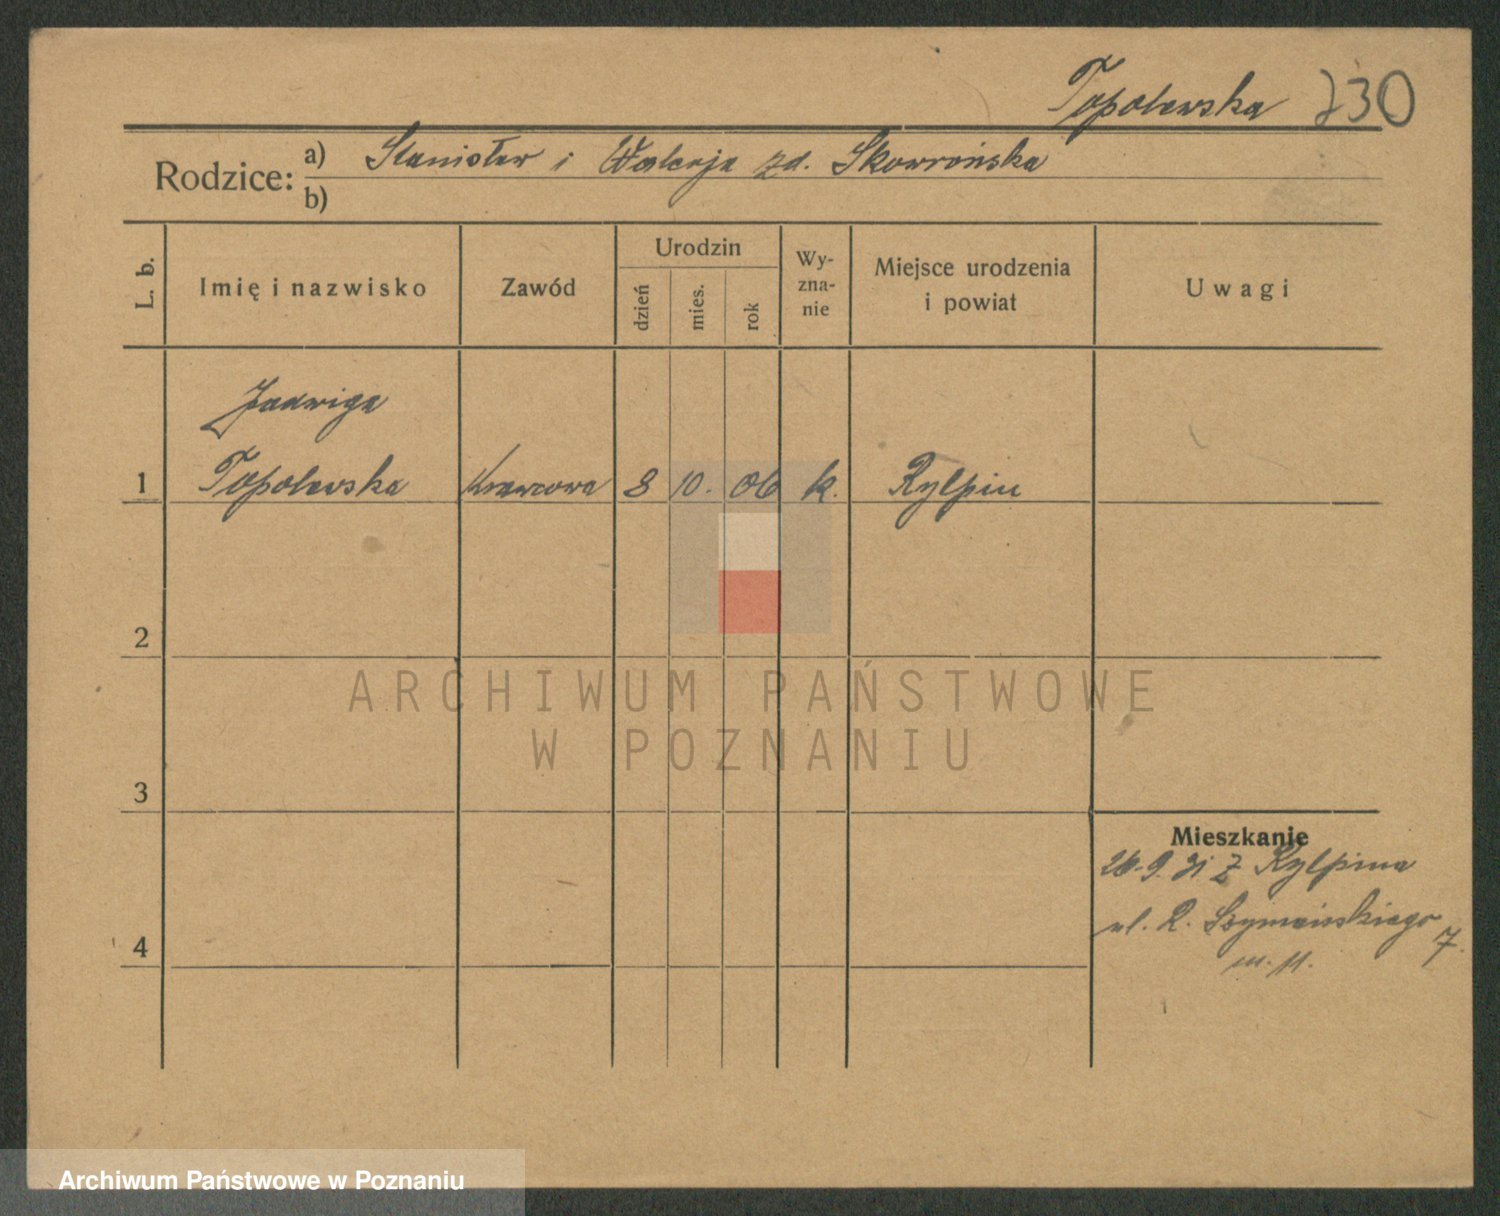 Topolewska 230
Rodzice: a) Stanisław i Walerja zd. Skowrońska
b)
L. b. Imię i nazwisko Zawód Urodzin dzień mies. rok Wyznanie Miejsce urodzenia i powiat Uwagi
Jadwiga
1 Topolewska Krawcowa 8 10. 06 k. Rylpin
2
ARCHIWUM PAŃSTWOWE
W POZNANIU
3
Mieszkanie
26.9.31 z Rylpina
ul. R. Szymańskiego 7.
4
m. 11.
Archiwum Państwowe w Poznaniu